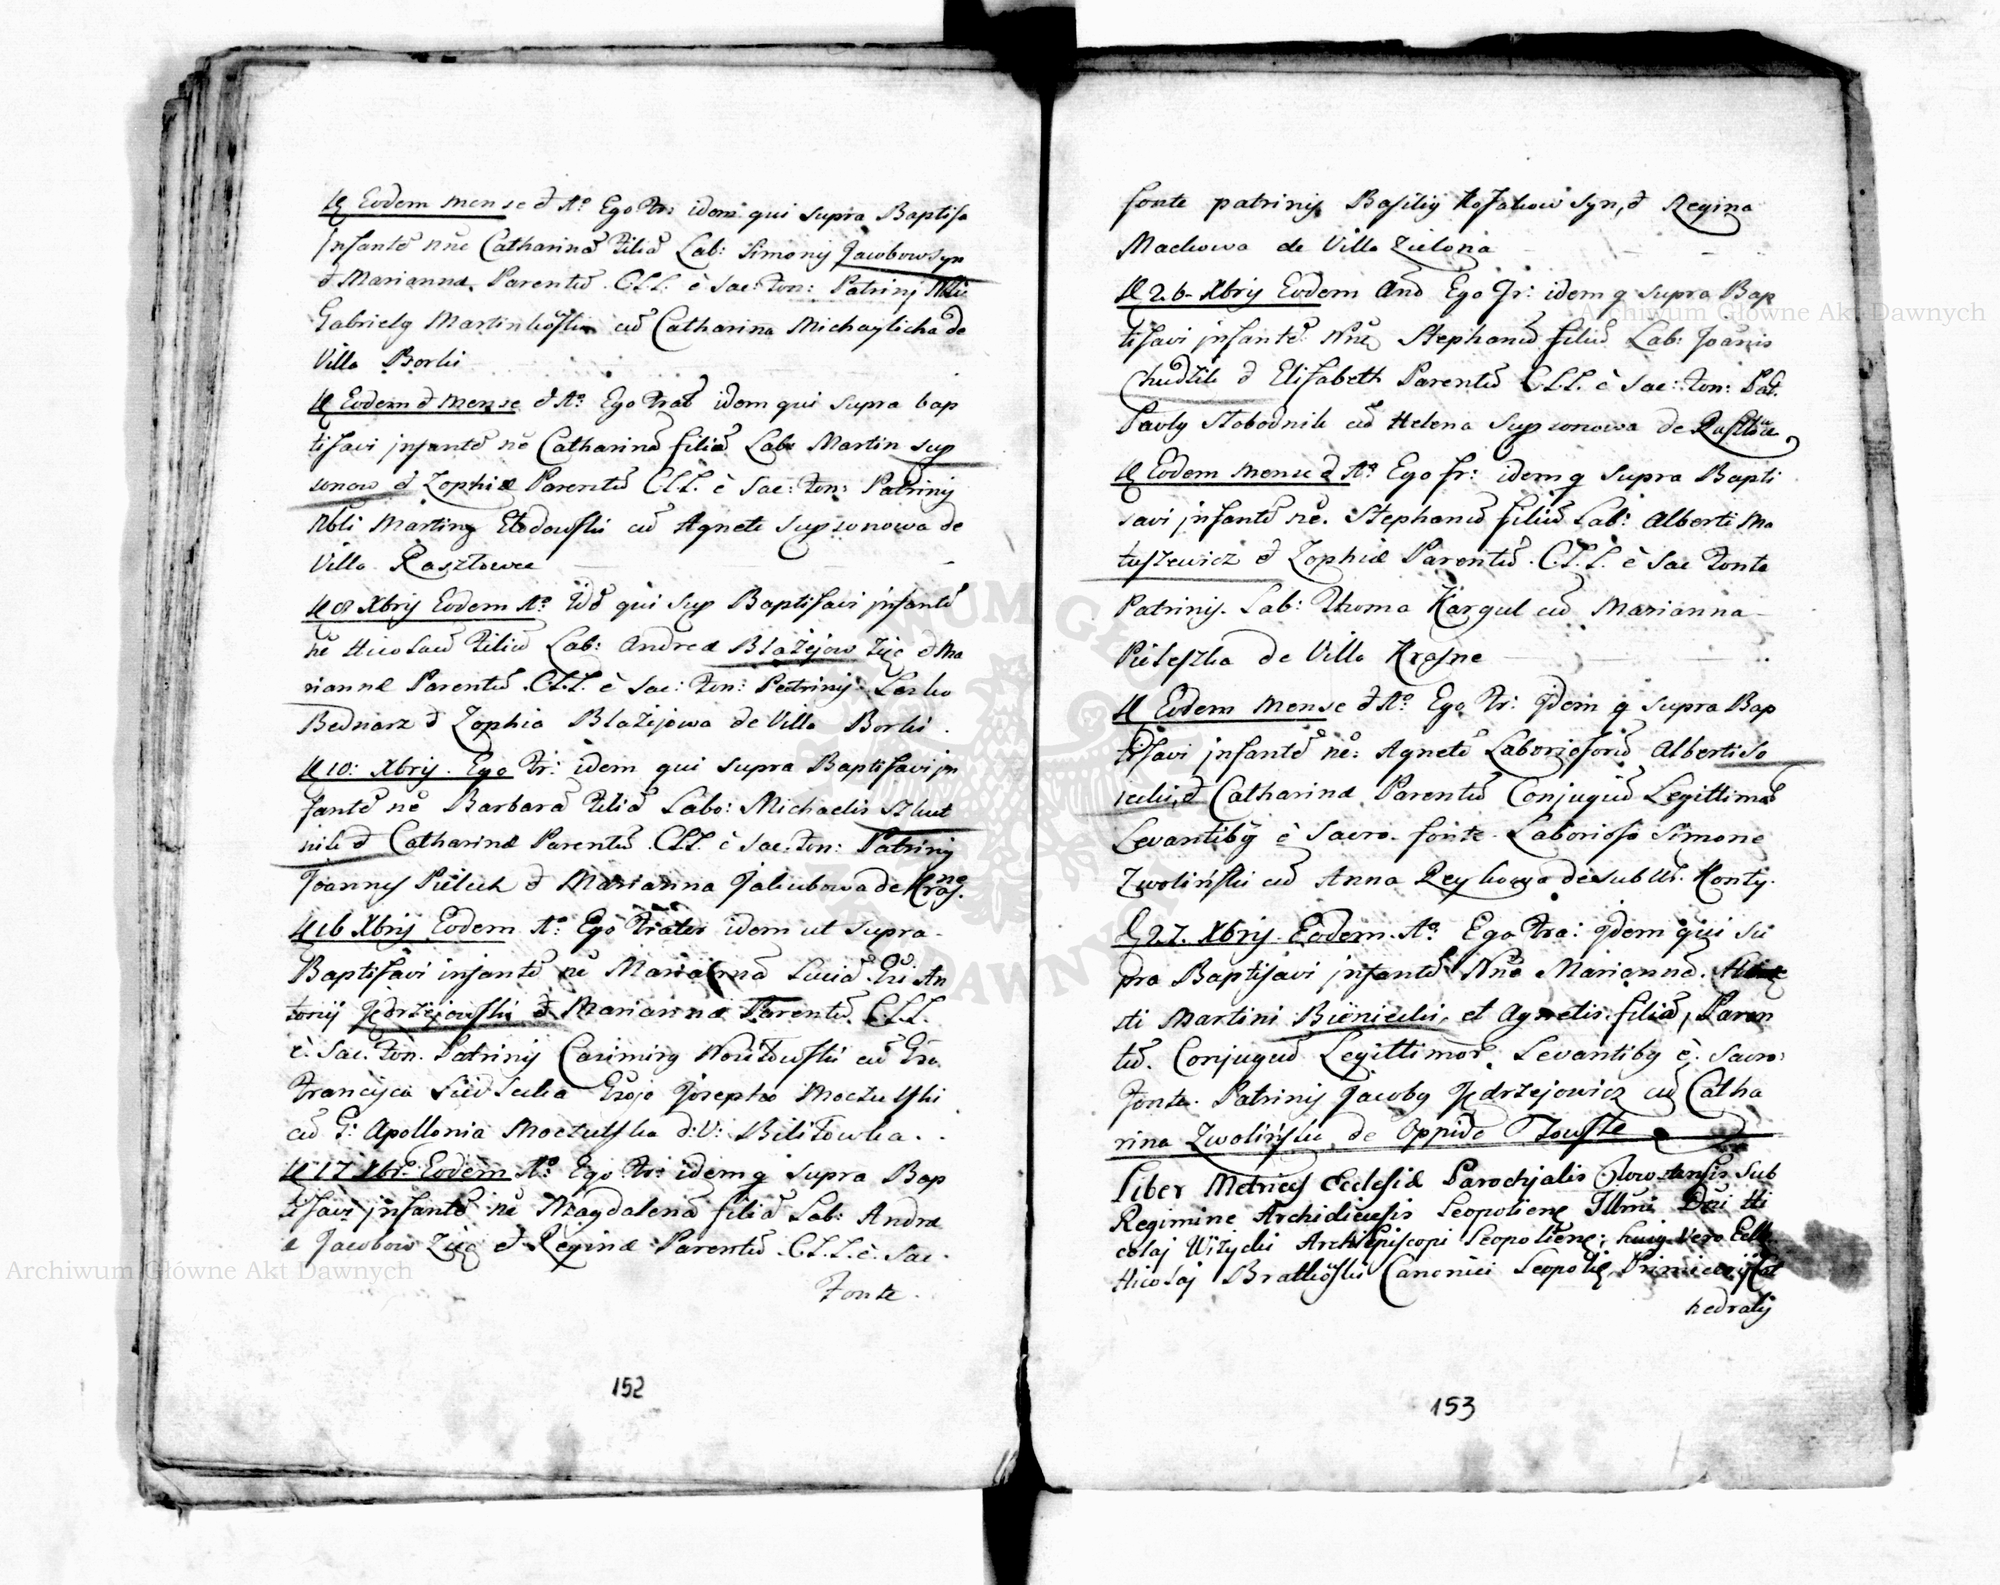 Eodem mense et Aº Ego Fr: idem qui supra Baptisa
Infantē nne Catharinā Filiā Lab: Simonij Jacobow Syn
et Marianna Parentū C.L.L. è Sac: Fon: Patrinij Nbli
Gabriely Martinkoski cū Catharina Michaylicha de
Villa Borki
Eodem et Mense et Aº Ego Frat idem qui supra bap
tisavi jnfantē nē Catharinā filiā Lab: Martin Sup
sonow et Zophiæ Parentū CLL è Sac: Fon: Patrinij
Nbli Martiny cū Agnete Supsonowa de
Villa Rasztowce
8 Xbrij Eodem Aº Idē qui sup Baptisavi jnfantē
nē Nicolaū Filiū Lab: Andreæ Blażejow Zięc et Ma
riannæ Parentū C.L.L. è Sac: Fon: Patrinij Lesko
Bednarz et Zophia Blażijowa de Villa Borki
10: Xbrij Ego Fr: idem qui supra Baptisavi jn
fantē nē Barbarā Filiā Labo: Michaelis Szkut
nik et Catharinæ Parentū CLL è Sac: Fon: Patrinij
Joannes Pielech et Marianna Jakubowa de Krasne
16 Xbrij Eodem Aº Ego Frater idem ut supra
Baptisavi infantē nē Mariannā An
tonij Jędrzejowski et Mariannæ Parentū C.L.L.
è Sac. Fon. Patrinij Casimiry cū
Francisca Josepho Moczulski
cū G: Apollonia Moczulska d: V: Bilitowka
17 Xbr. Eodem Aº Ego Fr: idem q supra Bap
tisavi jnfantē nē Magdalenā filiā Lab: Andre
æ Jacobow Zięc et Reginæ Parentū C.L.L. è Sac.
Fonte
152
fonte patrinij Basilij Kosakow syn, et Regina
Mackowa de Villa Zielona
26 Xbrij Eodem Anō Ego Fr: idem q supra Bap
tisavi jnfantē Nnē Stephanū filiū Lab: Joānis
Chudzik et Elisabeth Parentū C.L.L. è Sac: Fon: Pat.
Pavly Slobodnik cū Helena Supsonowa de
Eodem mense et Aº Ego Fr: idem q supra Bapti
savi jnfantē nē. Stephanū filiū Lab: Alberti Ma
tuszewicz et Zophiæ Parentū C.L.L. è Sac Fonte
Patrinij. Lab: Thoma Kargul cū Marianna
Pieleszka de Villa Krasne
Eodem Mense et Aº Ego Fr: Jdem q supra Bap
tisavi jnfantē nē: Agnetē Laboriosorū Alberti So
et Catharinæ Parentū Conjugū Legittimor
Levantiby è Sacro fonte Laborioso Simone
Zwoliński cū Anna Reykowa de Konty
27. Xbrij Eodem Aº Ego Fra: Jdem qui su
pra Baptisavi jnfantē Nnē Mariannā
sti Martini Bieniecki, et Agnetis filiā, Paren
tū Conjugū Legittimor Levantiby è Sacro
Fonte. Patrinij Jacoby Jędrzejowicz cū Catha
rina Zwolińska de Oppido Touste
Liber Metrices Ecclesiæ Parochjalis Sub
Regimine Archidiecesis Leopoliens Illmi Dni Ni
colaj Wiżycki Archiepiscopi Leopoliens; hujg Vero
Nicolaj Bratkoski Canonici Leopolis
hedralij
153